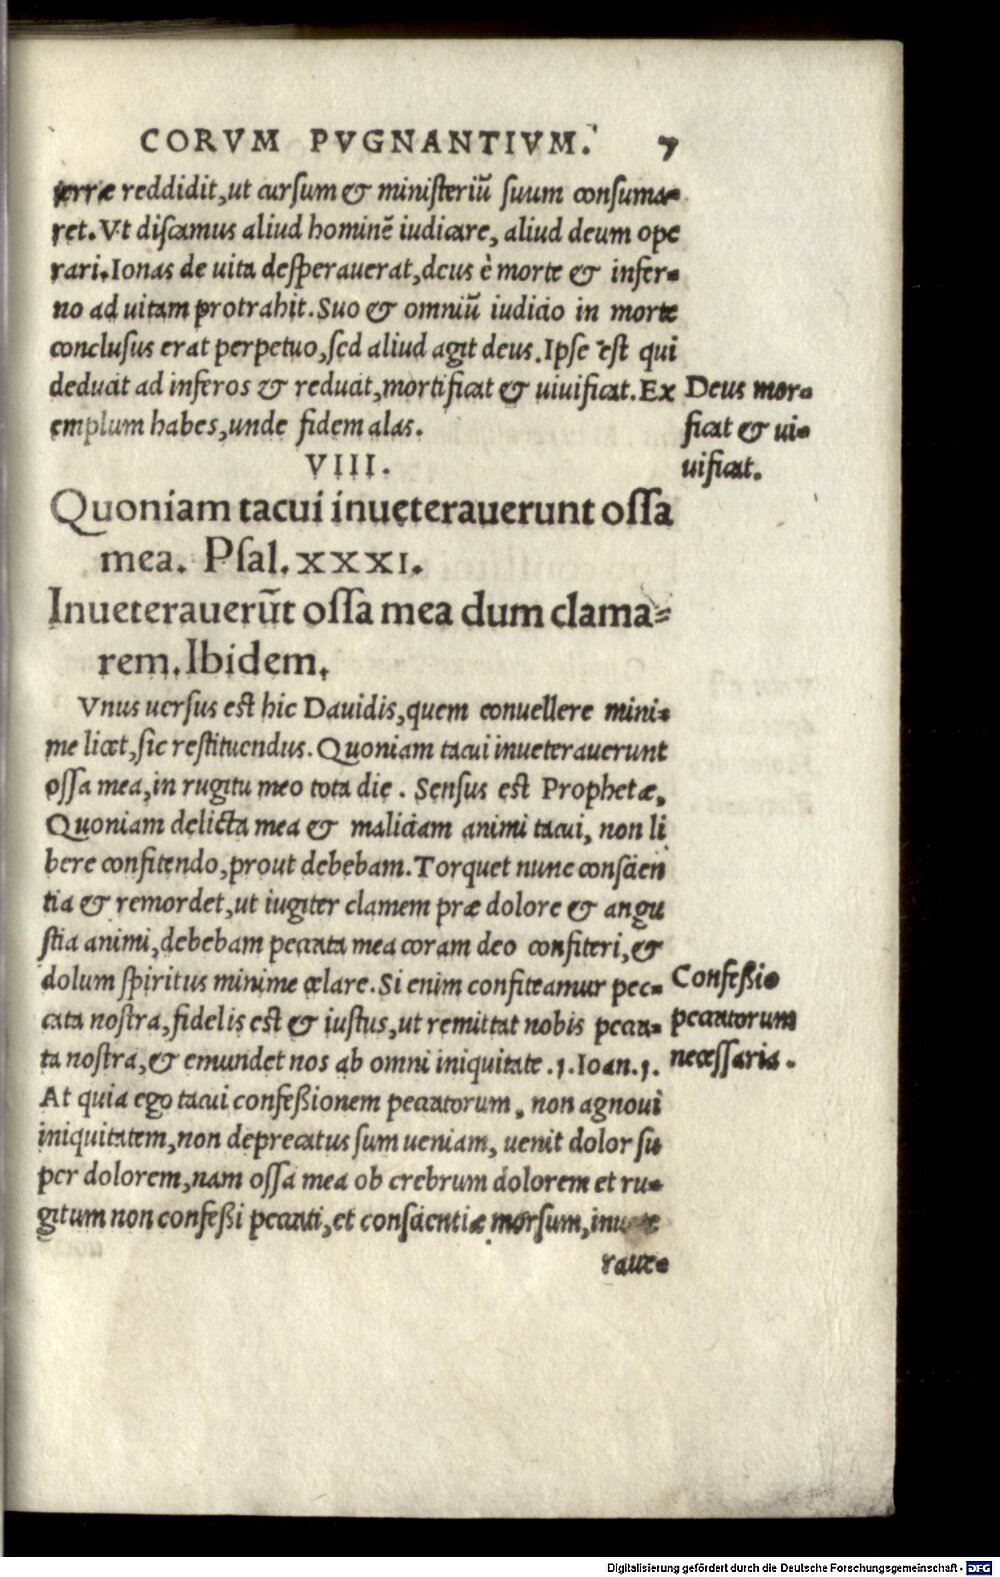 CORVM PVGNANTIVM. 7
terræ reddidit, ut cursum & ministeriū suum consuma-
ret. Vt discamus aliud hominē iudicare, aliud deum ope
rari. Ionas de uita desperauerat, deus è morte & infer-
no ad uitam protrahit. Suo & omniū iudicio in morte
conclusus erat perpetuo, sed aliud agit deus. Ipse est qui
deducit ad inferos & reducit, mortificat & uiuificat. Ex
emplum habes, unde fidem alas.
Deus mor-
ficat & ui-
uificat.
VIII.
Quoniam tacui inueterauerunt ossa
mea. Psal. XXXI.
Inueterauerūt ossa mea dum clama-
rem. Ibidem.
Vnus uersus est hic Dauidis, quem conuellere mini-
me licet, sic restituendus. Quoniam tacui inueterauerunt
ossa mea, in rugitu meo tota die. Sensus est Prophetæ,
Quoniam delicta mea & maliciam animi tacui, non li
bere confitendo, prout debebam. Torquet nunc conscien
tia & remordet, ut iugiter clamem præ dolore & angu
stia animi, debebam peccata mea coram deo confiteri, &
dolum spiritus minime celare. Si enim confiteamur pec-
cata nostra, fidelis est & iustus, ut remittat nobis pecca-
ta nostra, & emundet nos ab omni iniquitate. 1. Ioan. 1.
Confeßio
peccatorum
necessaria.
At quia ego tacui confeßionem peccatorum, non agnoui
iniquitatem, non deprecatus sum ueniam, uenit dolor su
per dolorem, nam ossa mea ob crebrum dolorem et ru-
gitum non confeßi peccati, et conscientiæ morsum, inuete
raue-
Digitalisierung gefördert durch die Deutsche Forschungsgemeinschaft - DFG